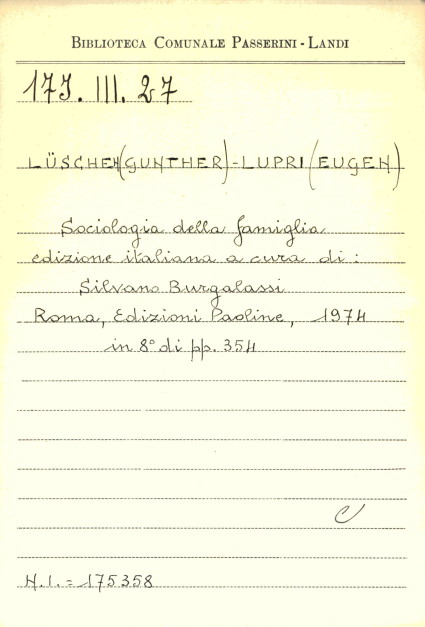 BIBLIOTECA COMUNALE PASSERINI - LANDI
17J. III. 27
LÜSCHEN (GUNTHER) - LUPRI (EUGEN)
Sociologia della famiglia
edizione italiana a cura di :
Silvano Burgalassi
Roma, Edizioni Paoline, 1974
in 8° di pp. 354
C
N.I. = 175358